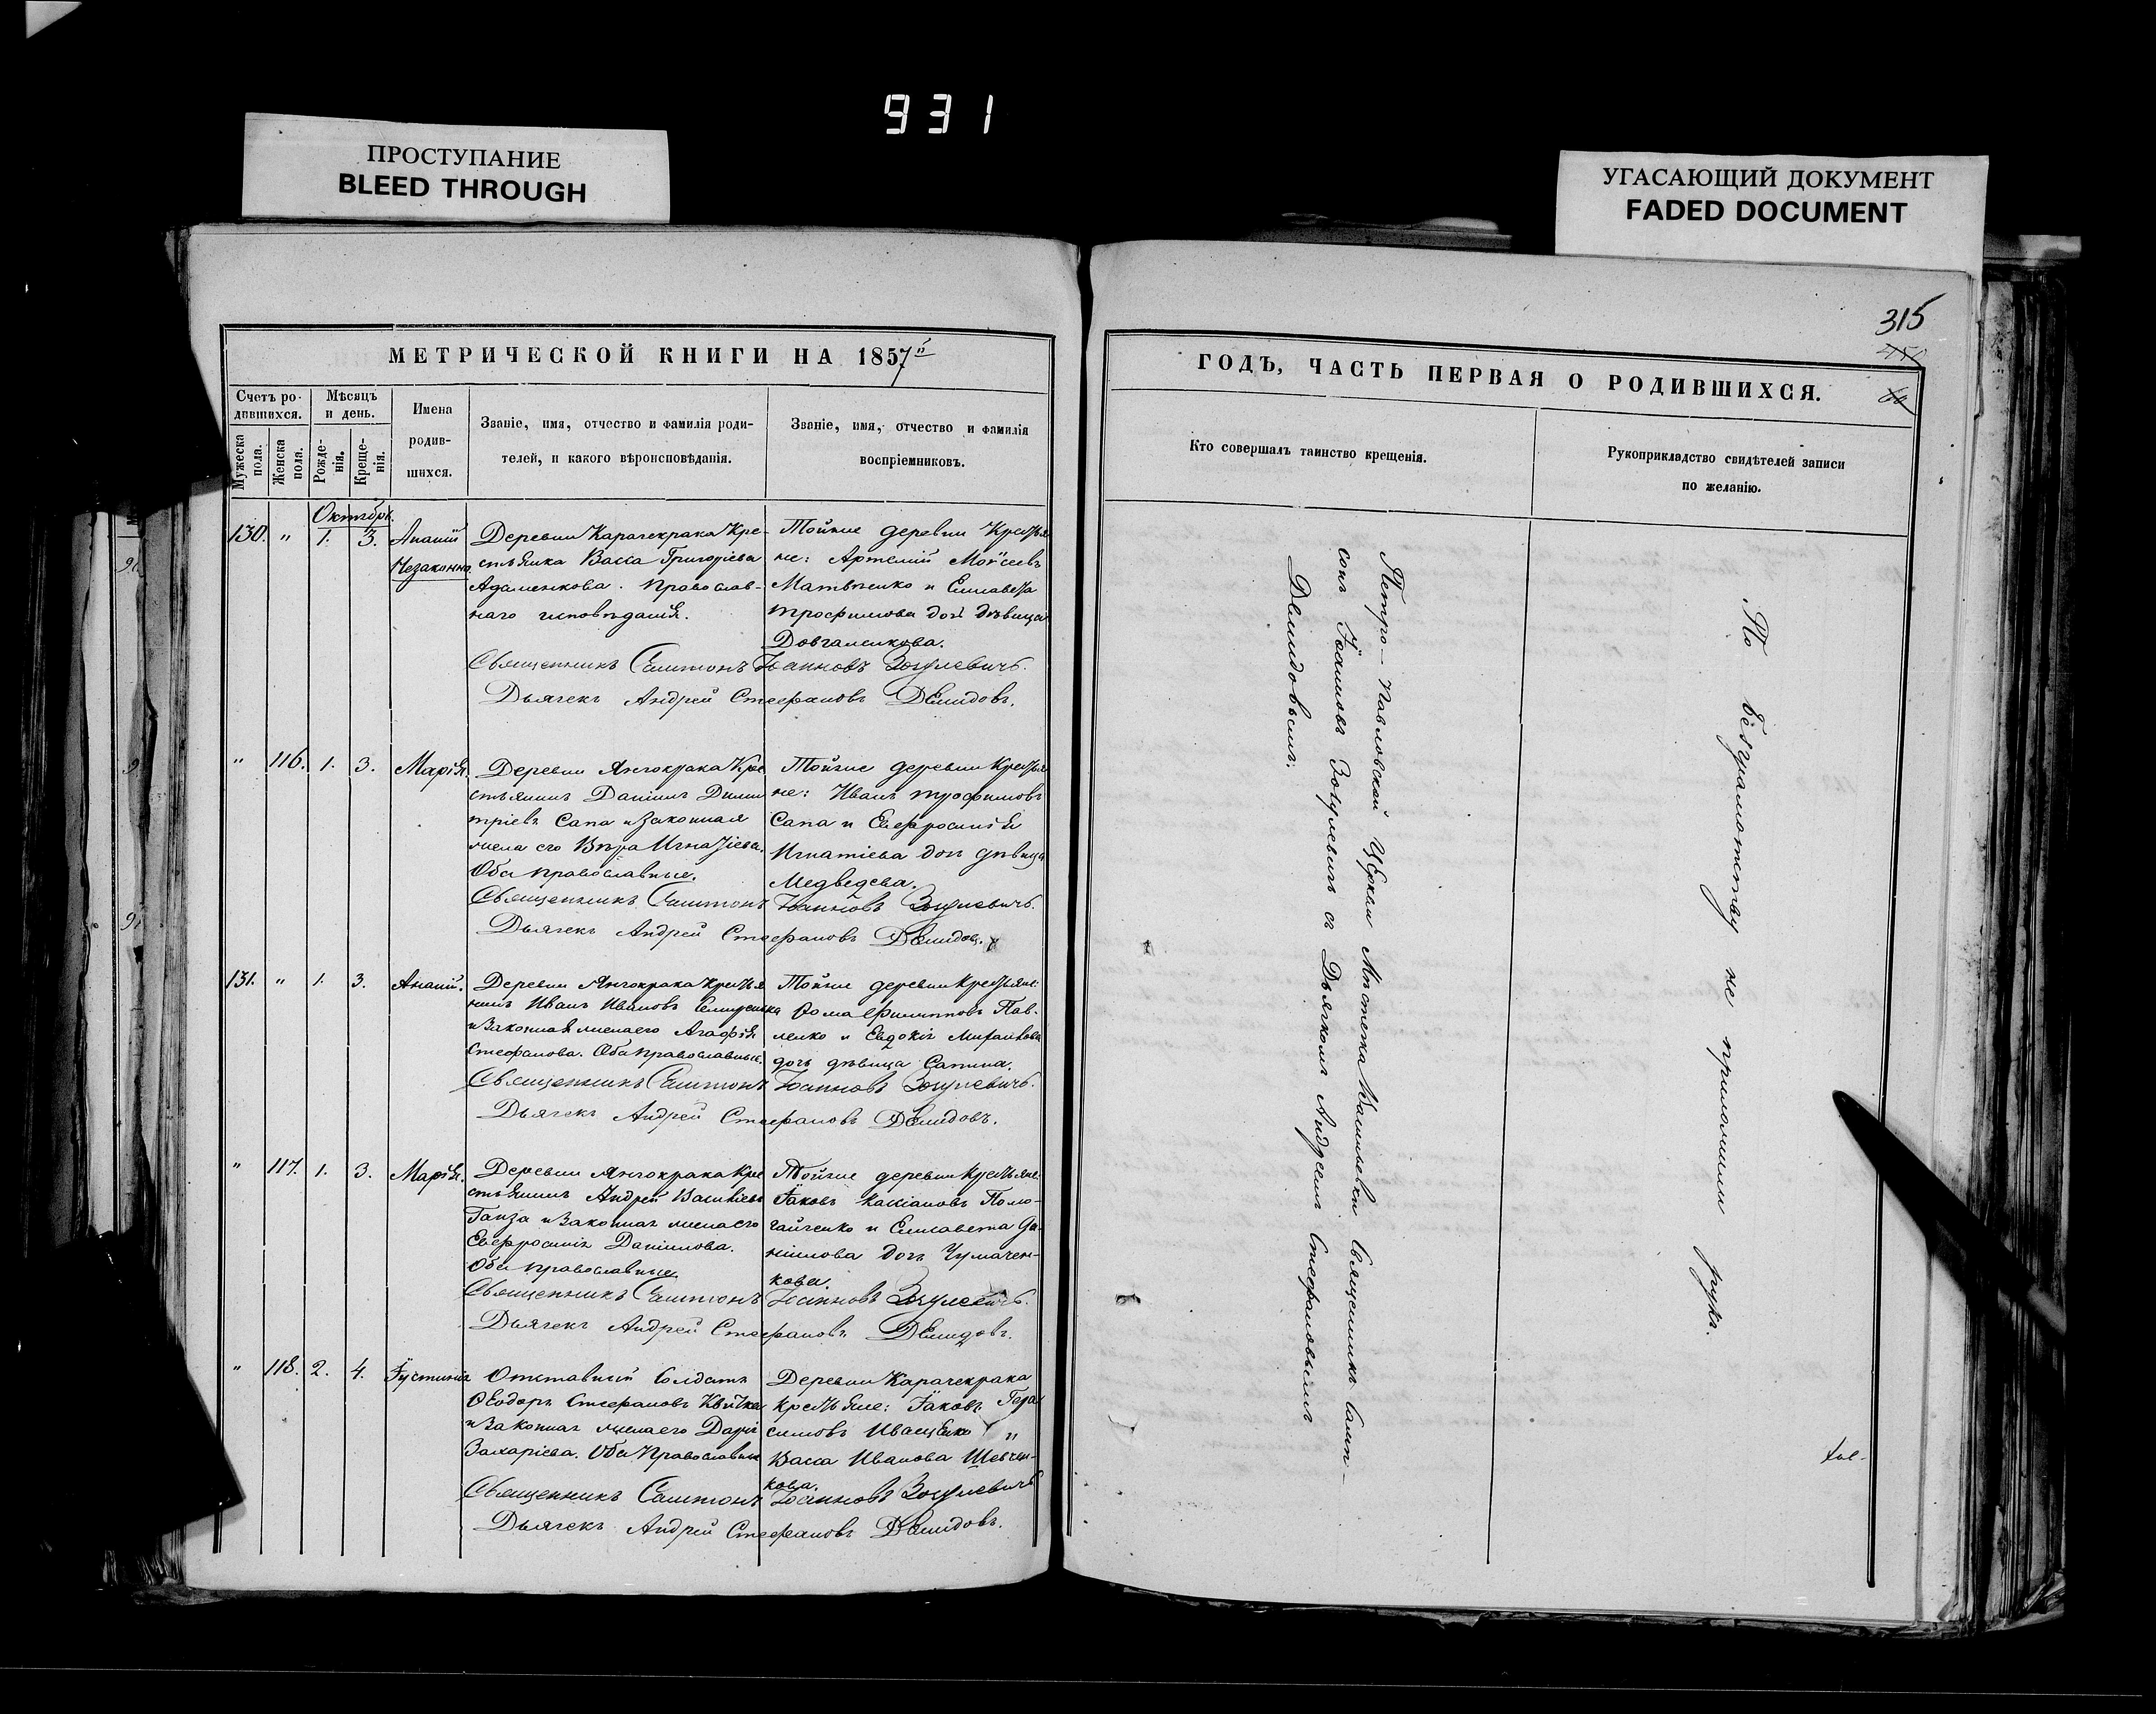 931
ПРОСТУПАНИЕ
BLEED THROUGH
УГАСАЮЩИЙ ДОКУМЕНТ
FADED DOCUMENT
315
МЕТРИЧЕСКОЙ КНИГИ НА 1857й
Счетъ ро-
дившихся.
Мѣсяцъ
и день.
Мужеска пола.
Женска пола.
Рожде-
нія.
Креще-
нія.
Имена
родив-
шихся.
Званіе, имя, отчество и фамилія роди-
телей, и какого вѣроисповѣданія.
Званіе, имя, отчество и фамилія
воспріемниковъ.
Октябрь.
130. " 1. 3. Ананій
Незаконно.
Деревни Карачекрака Кре-
стьянка Васса Григоріева
Адаменкова. Православ-
наго исповѣданія.
Тойже деревни Крестья
не: Артемій Моѵсеевъ
Матвѣенко и Елисавета
Трофимова дочь дѣвица
Довгаленкова.
Священникъ Сампсонъ Іоанновъ Зогулевичъ.
Дьячекъ Андрей Стефановъ Демидовъ.
" 116. 1. 3. Марія.
Деревни Янчокрака Кре
стьянинъ Даніилъ Дими
тріевъ Сапа и законная
жена его Вѣра Игнатіева.
Оба православные.
Тойже деревни Крестья
не: Иванъ Трофимовъ
Сапа и Евфросинія
Игнатіева дочь дѣвица
Медведева.
Священникъ Сампсонъ Іоанновъ Зогулевичъ.
Дьячекъ Андрей Стефановъ Демидовъ.
131. " 1. 3. Ананій.
Деревни Янчокрака Крестья
нинъ Иванъ Ивановъ
и законная жена его Агафія
Стефанова. Оба православные.
Тойже деревни Крестьяне:
Ѳома Филипповъ Пав-
ленко и Евдокія
дочь дѣвица Сапина.
Священникъ Сампсонъ Іоанновъ Зогулевичъ.
Дьячекъ Андрей Стефановъ Демидовъ.
" 117. 1. 3. Марія.
Деревни Янчокрака Кре
стьянинъ Андрей Василіевъ
Ганза и законная жена его
Евфросинія Даніилова.
Оба православные.
Тойже деревни Крестьяне:
Іаковъ Касіановъ Поло-
гайченко и Елисавета Да-
ніилова дочь Чумачен-
кова.
Священникъ Сампсонъ Іоанновъ Зогулевичъ.
Дьячекъ Андрей Стефановъ Демидовъ.
" 118. 2. 4. Іустинія
Отставный Солдатъ
Ѳеодоръ Стефановъ Квитка
и законная жена его Дарія
Захаріева. Оба Православные
Деревни Карачекрака
Крестьяне: Іаковъ Гера
симовъ Иващенко и
Васса Иванова Шевчен-
кова.
Священникъ Сампсонъ Іоанновъ Зогулевичъ.
Дьячекъ Андрей Стефановъ Демидовъ.
ГОДЪ, ЧАСТЬ ПЕРВАЯ О РОДИВШИХСЯ.
Кто совершалъ таинство крещенія.
Рукоприкладство свидѣтелей записи
по желанію.
Петро-Павловской Церкви Мѣстечка Васильевки Священникъ Самп-
сонъ Іоанновъ Зогулевичъ съ Дьячкомъ Андреемъ Стефановымъ
Демидовымъ.
По безграмотству не приложили рукъ.